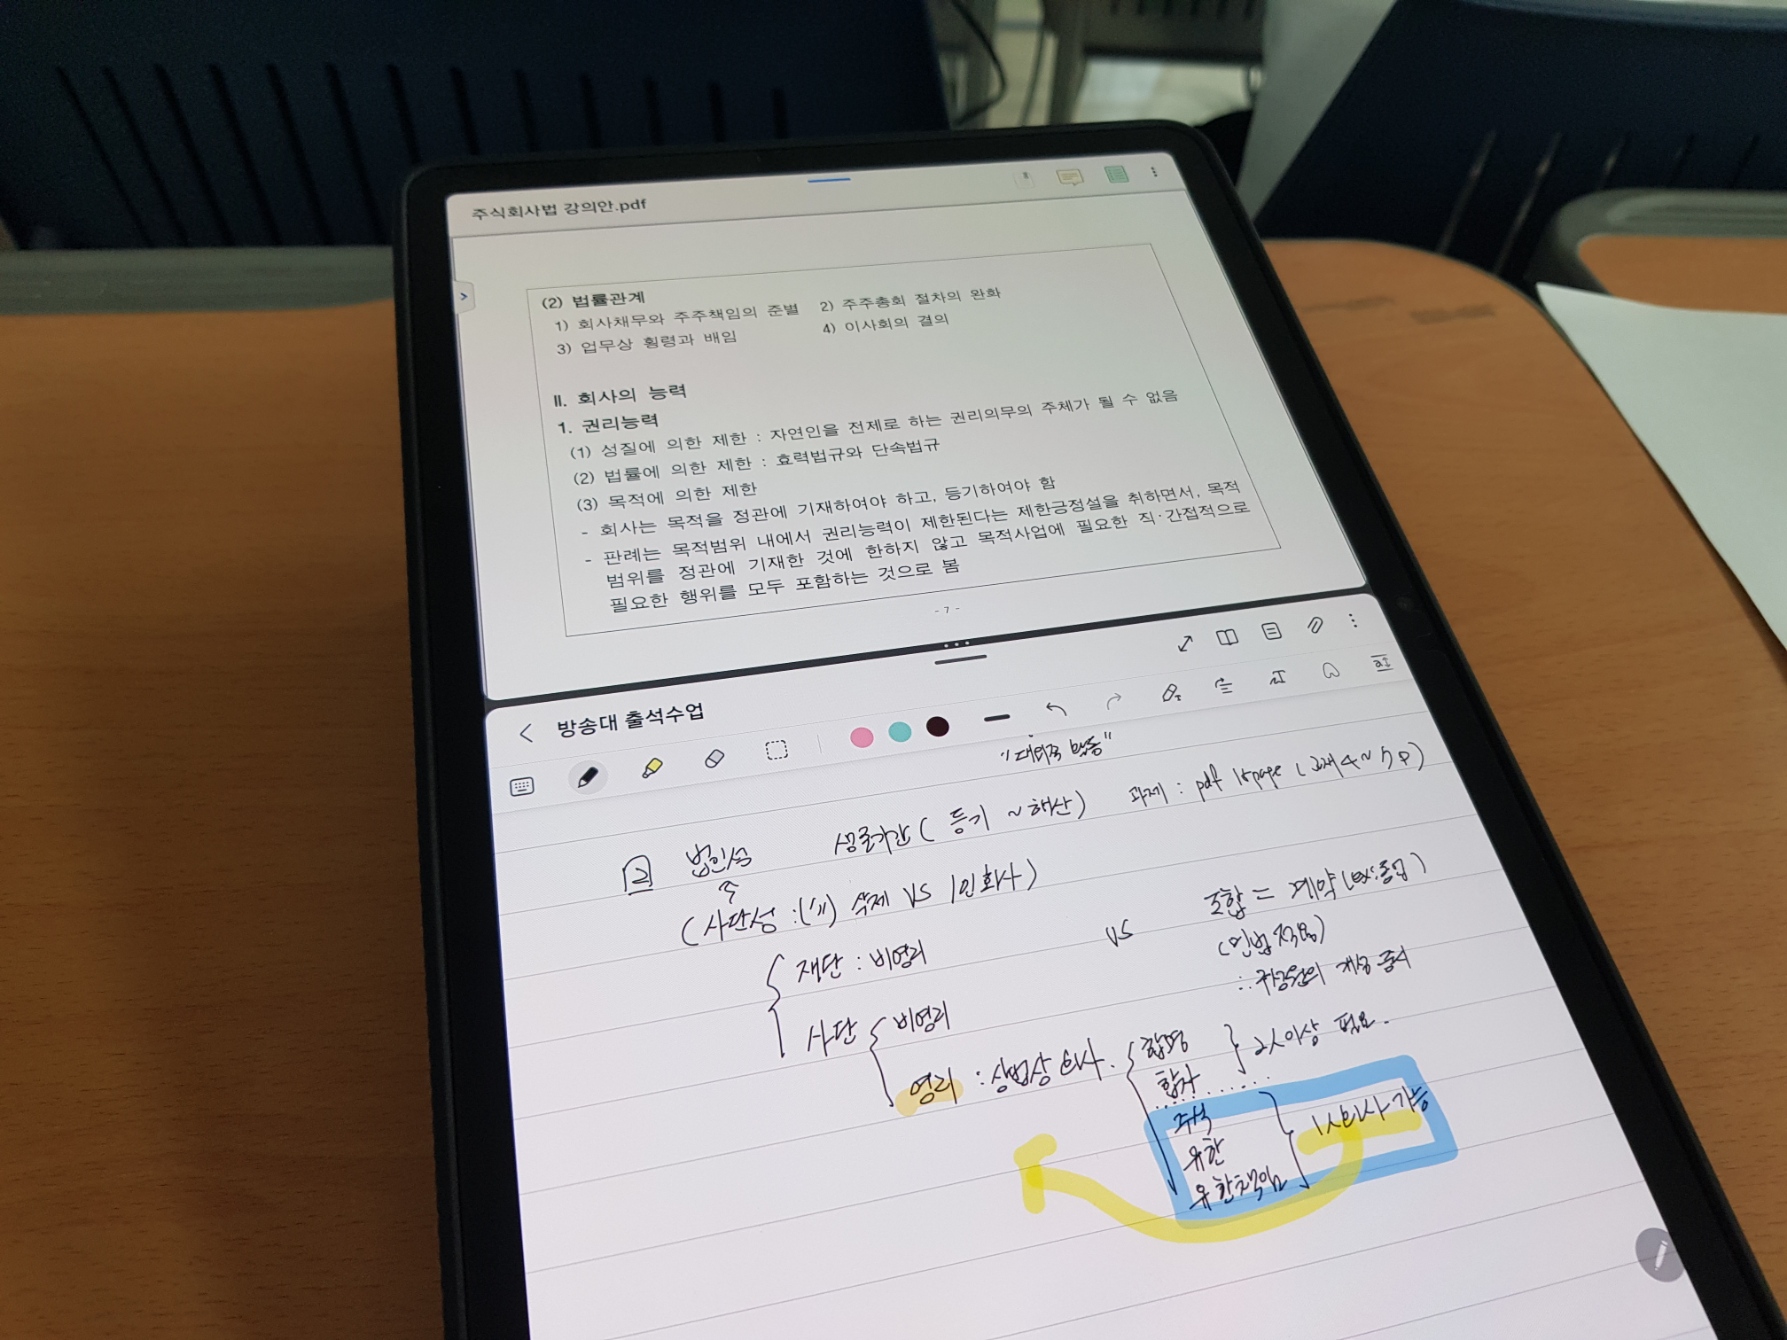 주식회사법 강의안.pdf
(2) 법률관계
1) 회사채무와 주주책임의 준별 2) 주주총회 절차의 완화
3) 업무상 횡령과 배임 4) 이사회의 결의
II. 회사의 능력
1. 권리능력
(1) 성질에 의한 제한 : 자연인을 전제로 하는 권리의무의 주체가 될 수 없음
(2) 법률에 의한 제한 : 효력법규와 단속법규
(3) 목적에 의한 제한
- 회사는 목적을 정관에 기재하여야 하고, 등기하여야 함
- 판례는 목적범위 내에서 권리능력이 제한된다는 제한긍정설을 취하면서, 목적
범위를 정관에 기재한 것에 한하지 않고 목적사업에 필요한 직·간접적으로
필요한 행위를 모두 포함하는 것으로 봄
- 7 -
방송대 출석수업
과제 : pdf page (교재 4~5p)
2 법인성 생존기간 ( 등기 ~ 해산)
(사단성 : ('11) 삭제 VS 1인회사)
재단 : 비영리 VS 조합 = 계약 (ex:동업)
(민법 적용)
사단 비영리 ∴ 구성원의 개성 중시
영리 : 상법상 회사. 합명
합자 2人이상 필요.
주식
유한 1人회사 가능
유한책임